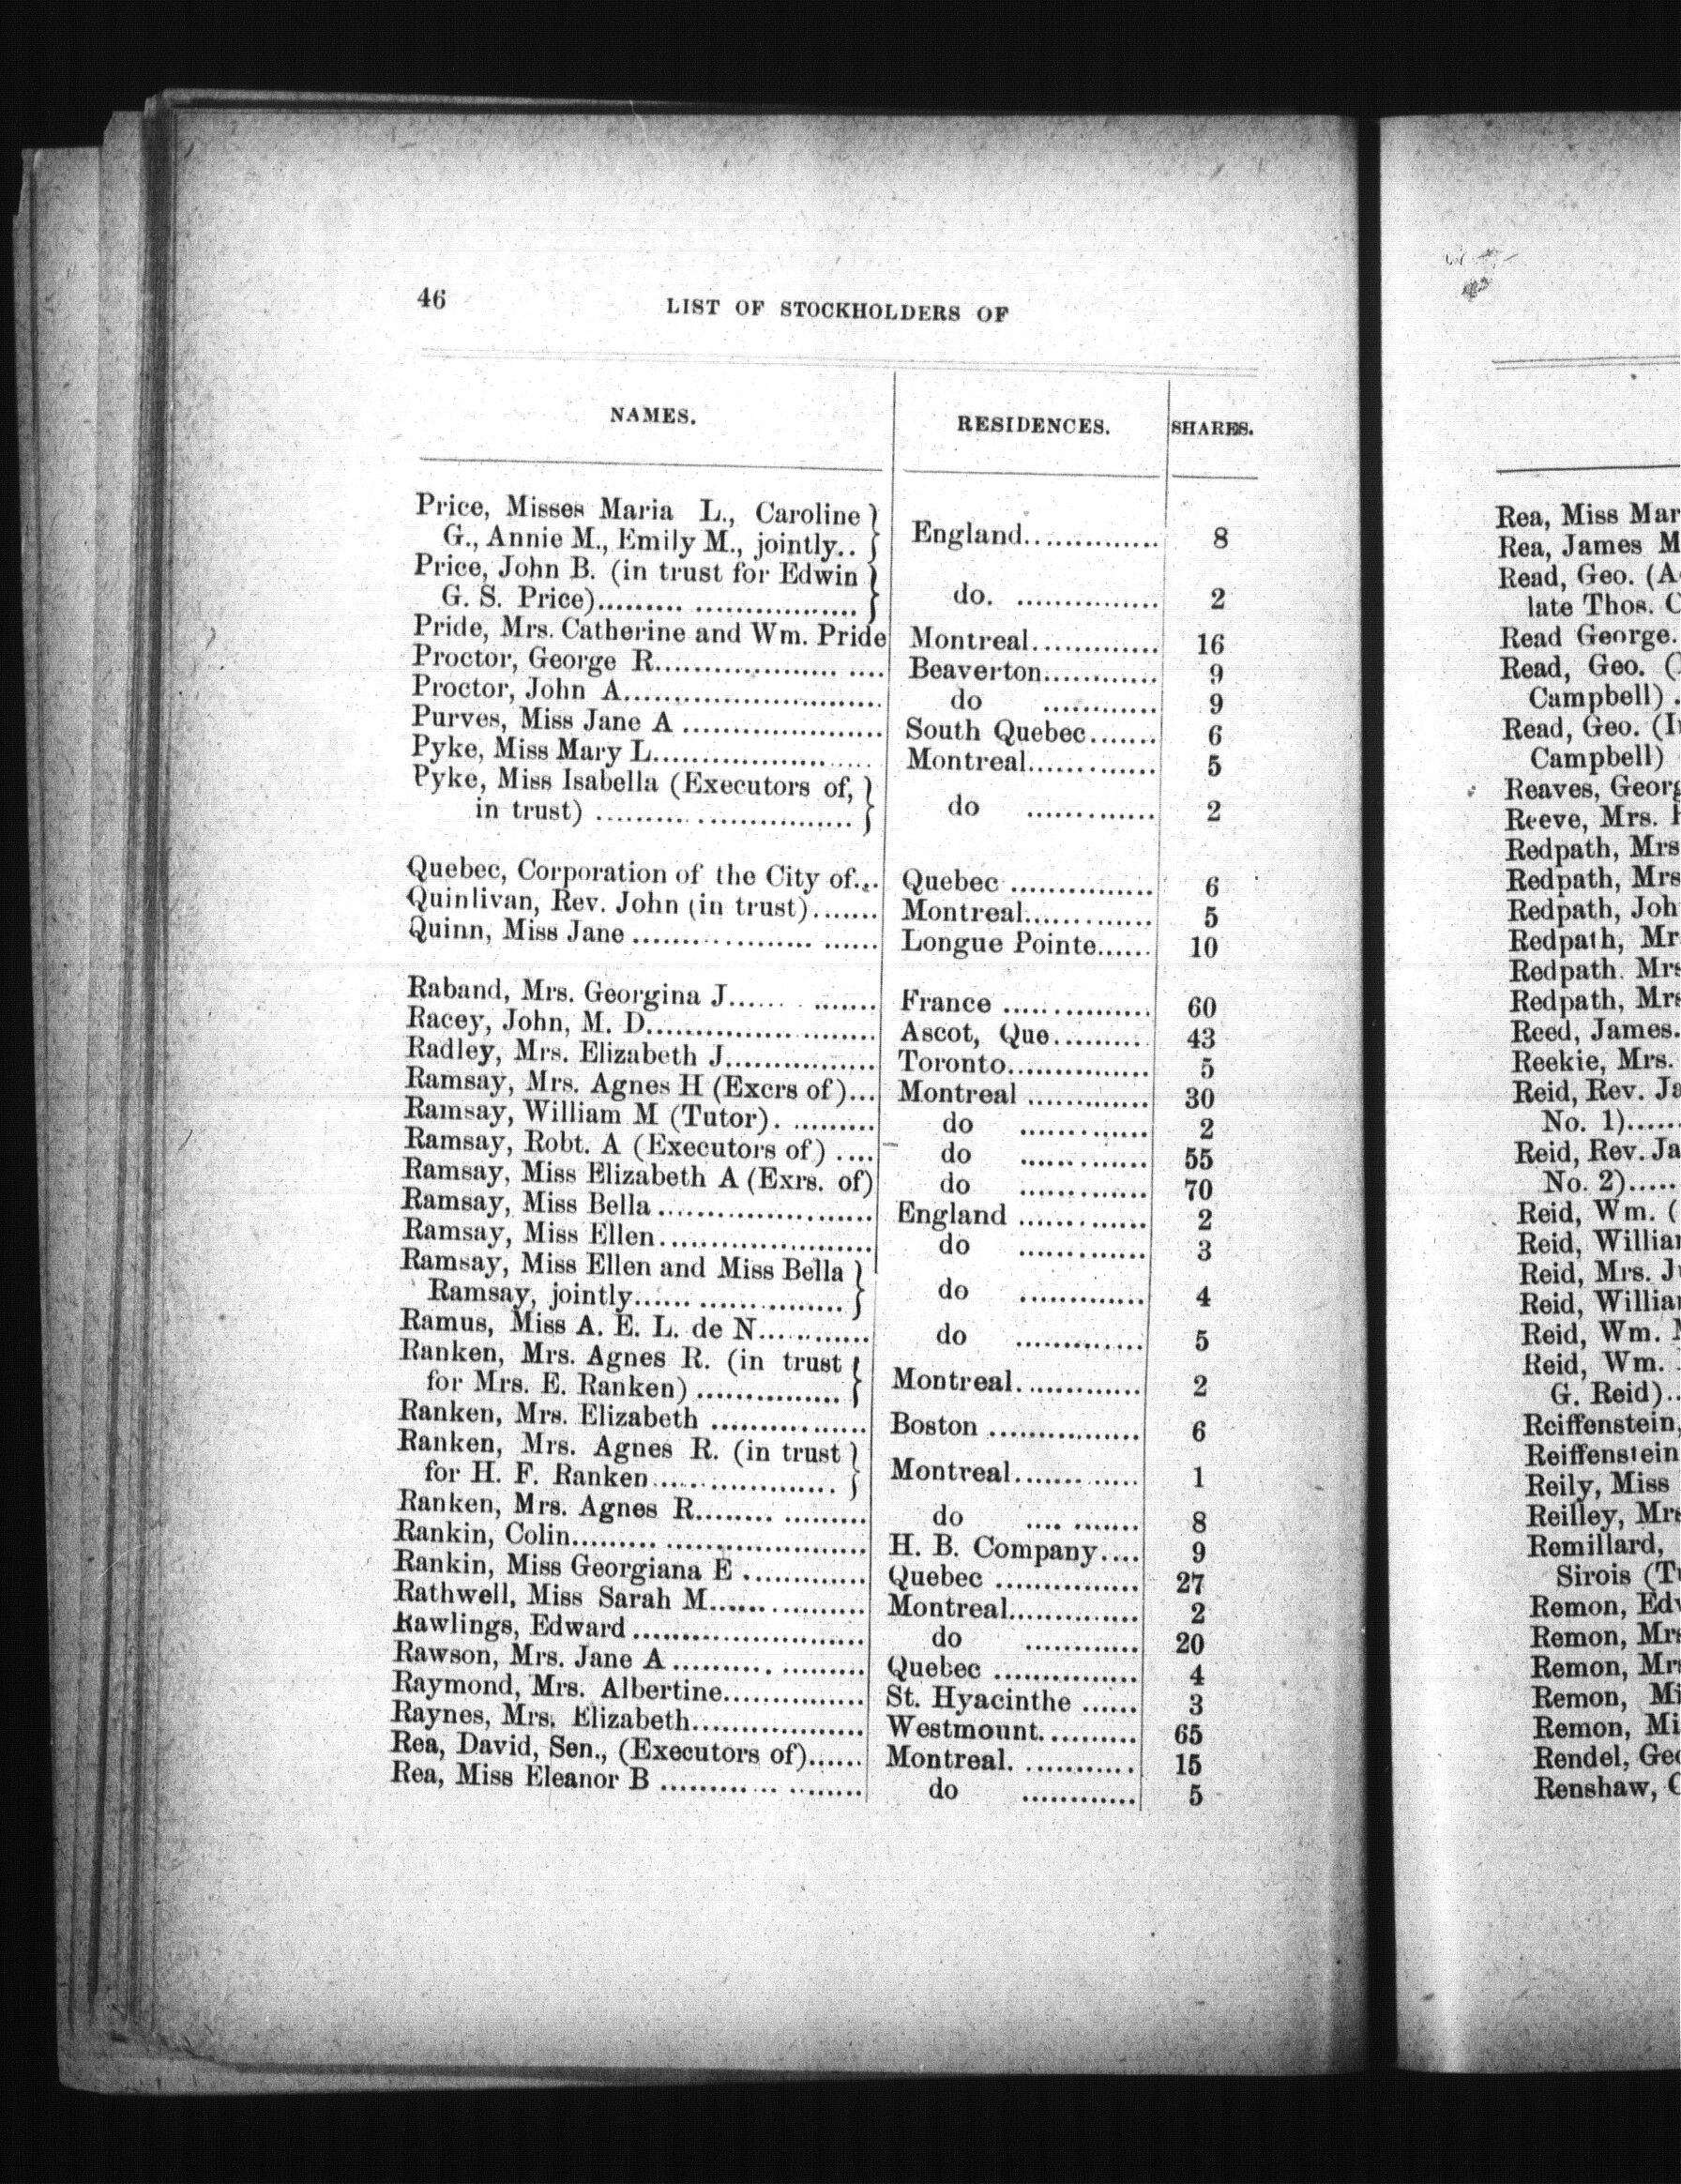 46
LIST OF STOCKHOLDERS OF
NAMES. RESIDENCES. SHARES.
Price, Misses Maria L., Caroline
G., Annie M., Emily M., jointly.. England.............. 8
Price, John B. (in trust for Edwin
G. S. Price)......... ................. do. ............... 2
Pride, Mrs. Catherine and Wm. Pride Montreal............. 16
Proctor, George R................... .... Beaverton............ 9
Proctor, John A............................. do ............ 9
Purves, Miss Jane A ...................... South Quebec....... 6
Pyke, Miss Mary L........................ Montreal............. 5
Pyke, Miss Isabella (Executors of,
in trust) .............................. do ............. 2
Quebec, Corporation of the City of... Quebec ............... 6
Quinlivan, Rev. John (in trust)....... Montreal............. 5
Quinn, Miss Jane .................. ...... Longue Pointe...... 10
Raband, Mrs. Georgina J...... ....... France ............... 60
Racey, John, M. D......................... Ascot, Que.......... 43
Radley, Mrs. Elizabeth J................ Toronto............... 5
Ramsay, Mrs. Agnes H (Excrs of)... Montreal ............. 30
Ramsay, William M (Tutor). ......... do ............. 2
Ramsay, Robt. A (Executors of) .... do ............. 55
Ramsay, Miss Elizabeth A (Exrs. of) do ............. 70
Ramsay, Miss Bella ....................... England ............. 2
Ramsay, Miss Ellen....................... do ............. 3
Ramsay, Miss Ellen and Miss Bella
Ramsay, jointly...... ................ do ............. 4
Ramus, Miss A. E. L. de N............ do ............. 5
Ranken, Mrs. Agnes R. (in trust
for Mrs. E. Ranken) ............... Montreal. ............ 2
Ranken, Mrs. Elizabeth ................ Boston ................ 6
Ranken, Mrs. Agnes R. (in trust
for H. F. Ranken.................... Montreal............. 1
Ranken, Mrs. Agnes R........ ......... do .... ....... 8
Rankin, Colin......... ...................... H. B. Company.... 9
Rankin, Miss Georgiana E ............. Quebec ............... 27
Rathwell, Miss Sarah M................. Montreal.............. 2
Rawlings, Edward ......................... do ............ 20
Rawson, Mrs. Jane A .......... ......... Quebec ............... 4
Raymond, Mrs. Albertine............... St. Hyacinthe ...... 3
Raynes, Mrs. Elizabeth.................. Westmount.......... 65
Rea, David, Sen., (Executors of)...... Montreal. ............ 15
Rea, Miss Eleanor B ............ ........ do ............ 5
Rea, Miss Mar
Rea, James M
Read, Geo. (A
late Thos. C
Read George.
Read, Geo. (
Campbell) .
Read, Geo. (I
Campbell)
Reaves, Georg
Reeve, Mrs.
Redpath, Mrs
Redpath, Mrs
Redpath, Joh
Redpath, Mr
Redpath. Mrs
Redpath, Mrs
Reed, James.
Reekie, Mrs.
Reid, Rev. Ja
No. 1)......
Reid, Rev. Ja
No. 2).....
Reid, Wm. (
Reid, Willia
Reid, Mrs. J
Reid, Willia
Reid, Wm.
Reid, Wm.
G. Reid)..
Reiffenstein,
Reiffenstein
Reily, Miss
Reilley, Mrs
Remillard,
Sirois (T
Remon, Ed
Remon, Mrs
Remon, Mr
Remon, Mi
Remon, Mi
Rendel, Geo
Renshaw, C